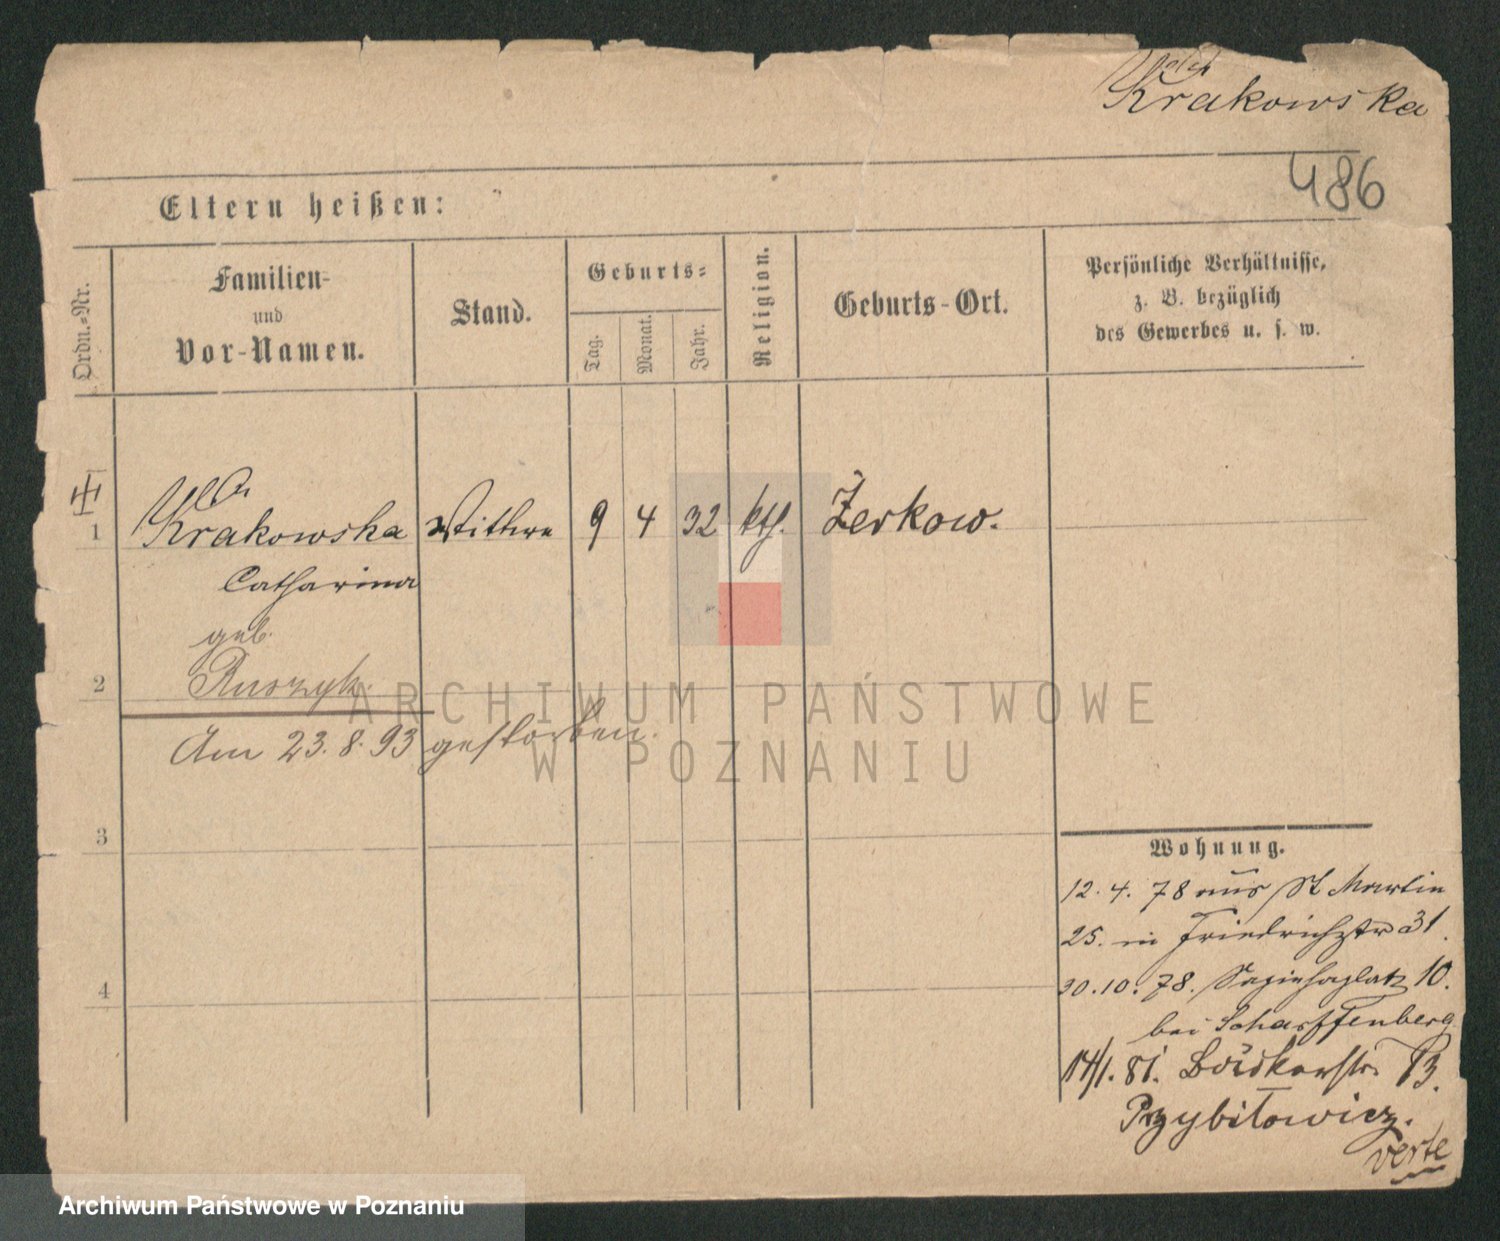 Krakowska
486
Eltern heißen:
Ordn.-Nr.
Familien-
und
Vor-Namen.
Stand.
Geburts-
Tag.
Monat.
Jahr.
Religion.
Geburts-Ort.
Persönliche Verhältnisse,
z. B. bezüglich
des Gewerbes u. s. w.
1 Krakowska Wittwe 9 4 32 kth. Zerkow.
Catharina
geb.
2 Ruszyk.
Am 23.8.93 gestorben.
3
4
Wohnung.
12.4.78 aus St Martin
25. in Friedrichstr 31.
30.10.78. Sapiehaplatz 10.
bei Scharffenberg
14/1.81. 13.
Przybiłowicz.
verte
ARCHIWUM PAŃSTWOWE
W POZNANIU
Archiwum Państwowe w Poznaniu